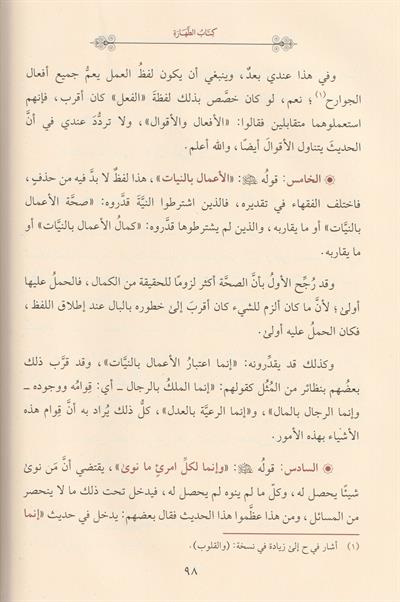 كِتَابُ الطَّهَارَة
وفي هذا عندي بعدٌ، وينبغي أن يكون لفظُ العمل يعمُّ جميع أفعال
الجوارح(١)؛ نعم، لو كان خصَّص بذلك لفظةَ «الفعل» كان أقرب، فإنهم
استعملوهما متقابلين فقالوا: «الأفعال والأقوال»، ولا تردُّدَ عندي في أنَّ
الحديثَ يتناول الأقوالَ أيضًا، والله أعلم.
الخامس: قولُه ﷺ: «الأعمال بالنيات»، هذا لفظٌ لا بدَّ فيه من حذفٍ،
فاختلف الفقهاء في تقديره، فالذين اشترطوا النيَّةَ قدَّروه: «صحَّة الأعمال
بالنيَّات» أو ما يقاربه، والذين لم يشترطوها قدَّروه: «كمالُ الأعمال بالنيَّات» أو
ما يقاربه.
وقد رُجِّح الأولُ بأنَّ الصحَّة أكثر لزومًا للحقيقة من الكمال، فالحملُ عليها
أولىٰ؛ لأنَّ ما كان ألزم للشيء كان أقربَ إلىٰ خطوره بالبال عند إطلاق اللفظ،
فكان الحملُ عليه أولىٰ.
وكذلك قد يقدِّرونه: «إنما اعتبارُ الأعمال بالنيَّات»، وقد قرَّب ذلك
بعضُهم بنظائر من المُثُل كقولهم: «إنما الملكُ بالرجال ـ أي: قِوامُه ووجوده ـ
وإنما الرجال بالمال»، و«إنما الرعيَّة بالعدل»، كلُّ ذلك يُراد به أنَّ قِوام هذه
الأشياء بهذه الأمور.
السادس: قولُه ﷺ: «وإنما لكلِّ امرئٍ ما نوىٰ»، يقتضي أنَّ مَن نوىٰ
شيئًا يحصل له، وكلّ ما لم ينوه لم يحصل له، فيدخل تحت ذلك ما لا ينحصر
من المسائل، ومن هذا عظَّموا هذا الحديث فقال بعضهم: يدخل في حديث «إنما
(١) أشار في ح إلىٰ زيادة في نسخة: (والقلوب).
٩٨